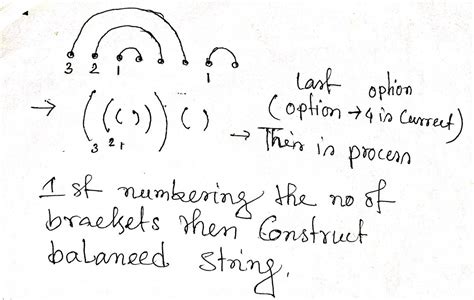 3 2 1 1
→ ( ( ( ) ) ) ( )
3 2 1
Last option
(option → 4 is currect)
→ This is process
1 st numbering the no of
brackets then Construct
balanced string.